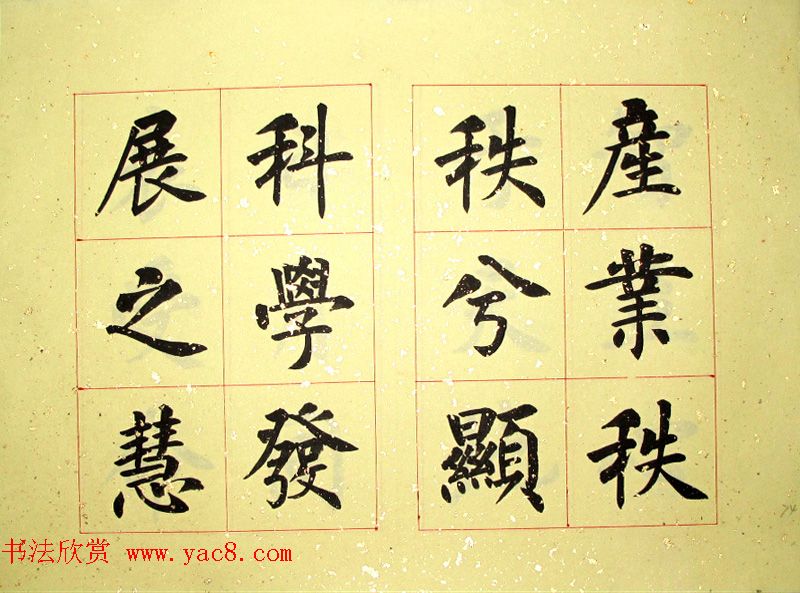 産業秩
秩兮顯
科學發
展之慧
书法欣赏 www.yac8.com